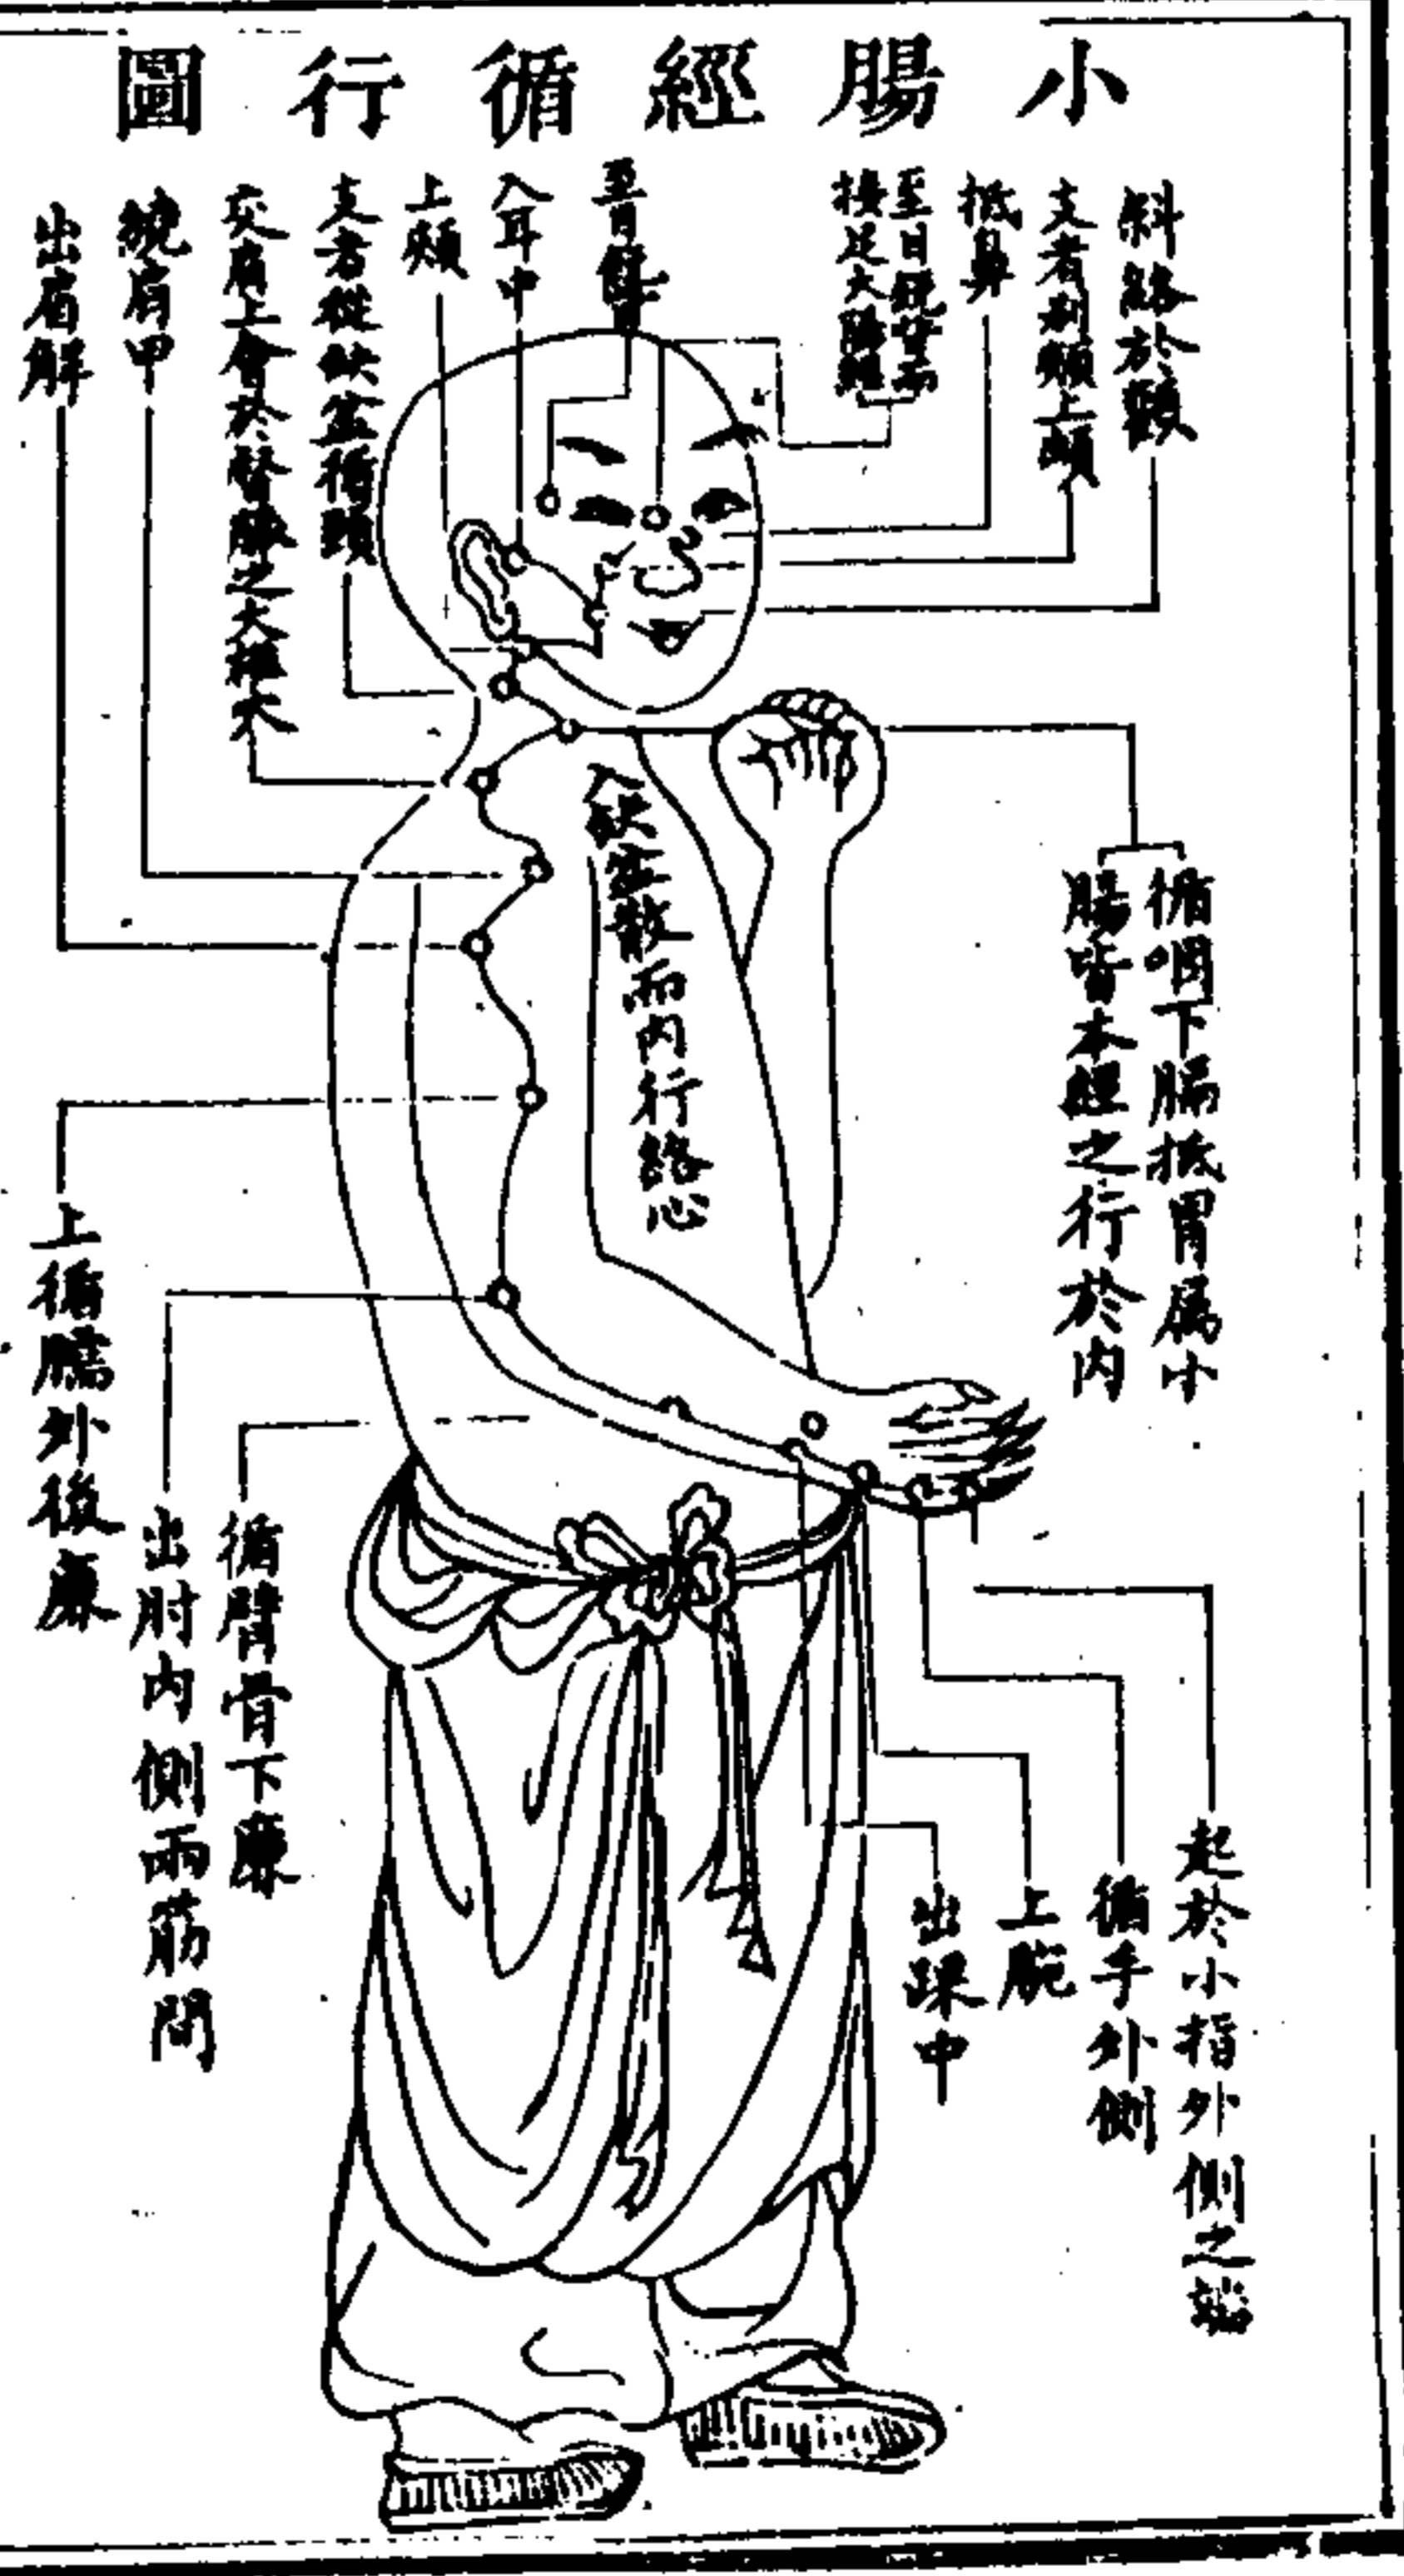 小腸經循行圖
斜絡於顴
支者別頰上䪼
抵鼻
至目銳眥而
接足大陽經
至目
入耳中
上頰
支者從缺盆循頸
交肩上會於督脉之大椎穴
繞肩甲
出肩解
入缺盆散而內行絡心
循咽下膈抵胃屬小
腸皆本經之行於內
上循臑外後廉
出肘內側兩筋間
循臂骨下廉
起於小指外側之端
循手外側
上腕
出踝中